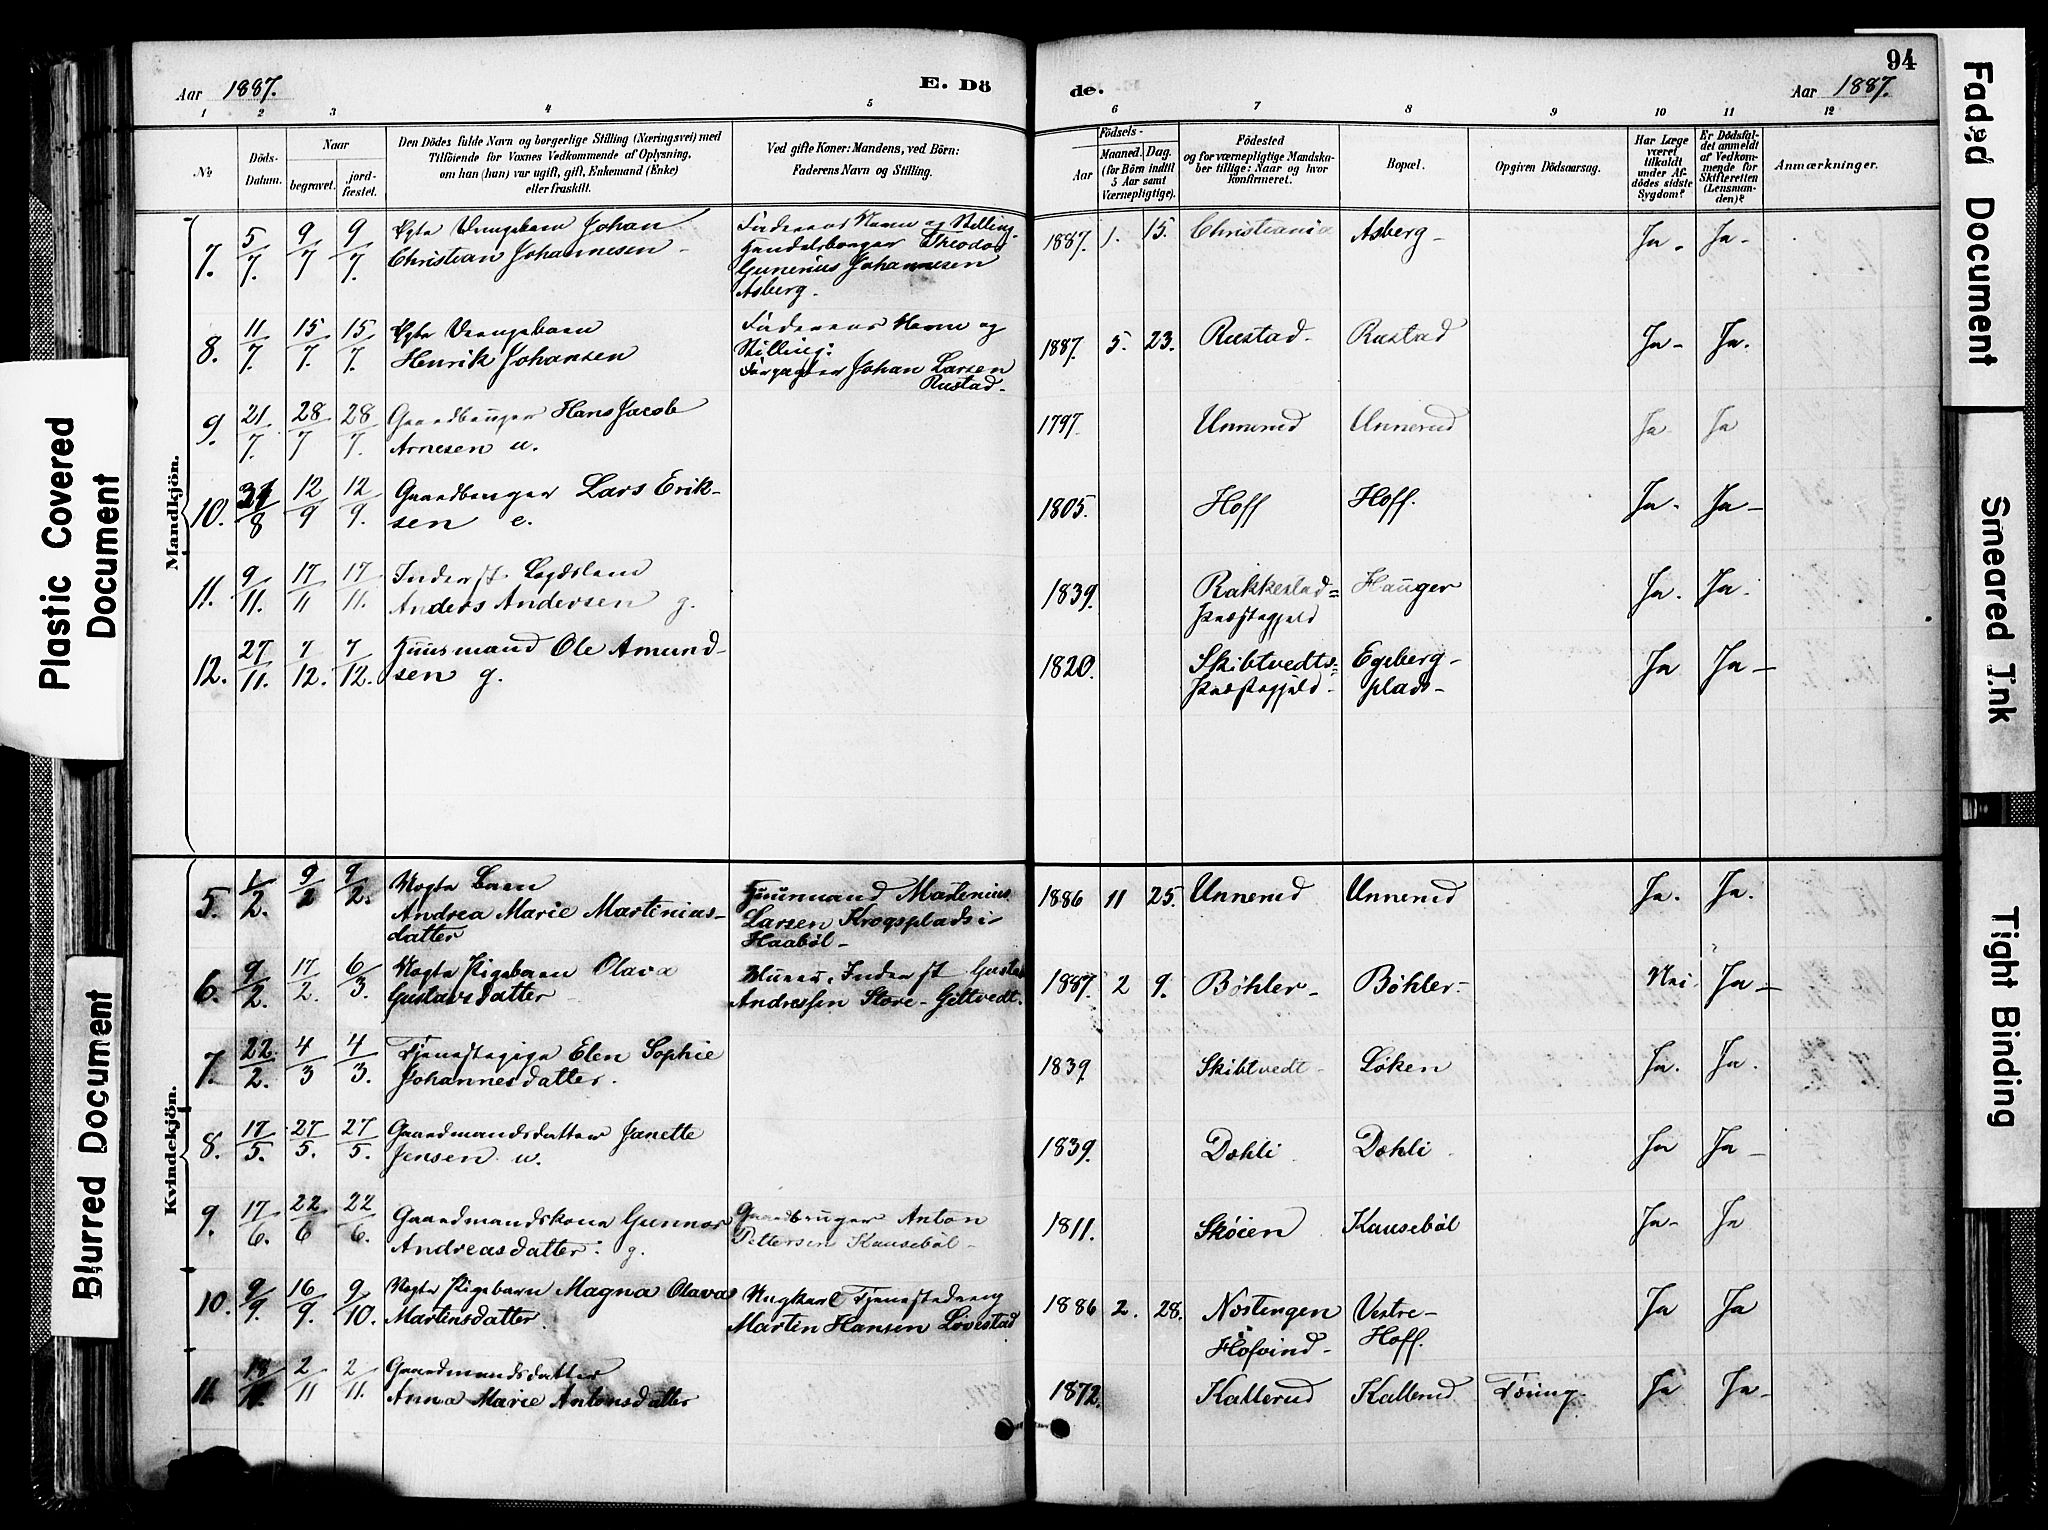 Aar 1887.
E. Dö
1 2 3 4 5
№
Döds-
Datum.
Naar
begravet.
jord-
fæstet.
Den Dödes fulde Navn og borgerlige Stilling (Næringsvei) med
Tilföiende for Voxnes Vedkommende af Oplysning,
om han (hun) var ugift, gift, Enkemand (Enke)
eller fraskilt.
Ved gifte Koner: Mandens, ved Börn:
Faderens Navn og Stilling.
Mandkjön.
7. 5/7. 9/7 9/7. Ægte Drengebarn Johan
Christian Johannesen
Faderens Navn og Stilling:
Handelsborger Theodor
Gunerius Johannesen
Asberg.
8. 11/7. 15/7. 15/7. Ægte Drengebarn
Henrik Johansen
Faderens Navn og
Stilling:
Forpagter Johan Larsen
Rustad.
9. 21/7. 28/7 28/7. Gaardbruger Hans Jacob
Arnesen u.
10. 31/8 12/9 12/9. Gaardbruger Lars Erik-
sen e.
11. 9/11. 17/11 17/11. Inderst Lægdslem
Anders Andersen g.
12. 27/11. 7/12. 7/12. Huusmand Ole Amund-
sen g.
Kvindekjön.
5. 1/2. 9/2 9/2. Uægte Barn
Andrea Marie Martinias-
datter
Huusmand Martenius
Larsen Krogsplads i
Haabøl
6. 9/2. 17/2. 6/3. Uægte Pigebarn Olava
Gustavsdatter
Inderst Gustav
Andressen Store-Gjeltvedt.
7. 22/2. 4/3 4/3. Tjenestepige Elen Sophie
Johannesdatter.
8. 17/5. 27/5. 27/5. Gaardmandsdatter Janette
Jensen u.
9. 17/6. 22/6 22/6. Gaardmandskone Gunnor
Andreasdatter. g.
Gaardbruger Anton
Pettersen Kausebøl
10. 9/9. 16/9. 9/10. Uægte Pigebarn Magna Olava
Martinsdatter.
Ungkarl Tjenestedreng
Marten Hansen Løvestad
11. 2/11 2/11. Gaardmandsdatter
Anna Marie Antonsdatter
94
de.
Aar 1887.
6 7 8 9 10 11 12
Födsels-
Aar
Maaned. Dag.
(for Börn indtil
5 Aar samt
Værnepligtige).
Födested
og for værnepligtige Mandska-
ber tillige: Naar og hvor
konfirmeret.
Bopæl.
Opgiven Dödsaarsag.
Har Læge
været
tilkaldt
under Af-
dödes sidste
Sygdom?
Er Dödsfal-
det anmeldt
af Vedkom-
mende for
Skifteretten
(Lensman-
den)?
Anmærkninger.
1887. 1. 15. Christiania Asberg Ja. Ja.
1887. 5. 23. Rustad. Rustad Ja Ja.
1797. Unnerud Unnerud Ja Ja
1805. Hoff Hoff. Ja. Ja
1839. Rakkestad=
Præstegjeld
Hauger Ja. Ja.
1820. Skibtvedts=
Præstegjeld.
Egeberg-
plads
Ja Ja
1886 11 25. Unnerud Unnerud Ja. Ja.
1887. 2 9. Bøhler Bøhler Nei. Ja
1839. Skibtvedt Løken Ja. Ja.
1839. Dæhli Dæhli Ja Ja
1811. Skøien Kausebøl Ja Ja
1886 2. 28. Næstengen
Hofvind
Vestre-
Hoff.
Ja Ja
1872. Kallerud Kallerud Tæring. Ja Ja
Plastic Covered
Document
Blurred Document
Faded Document
Smeared Ink
Tight Binding